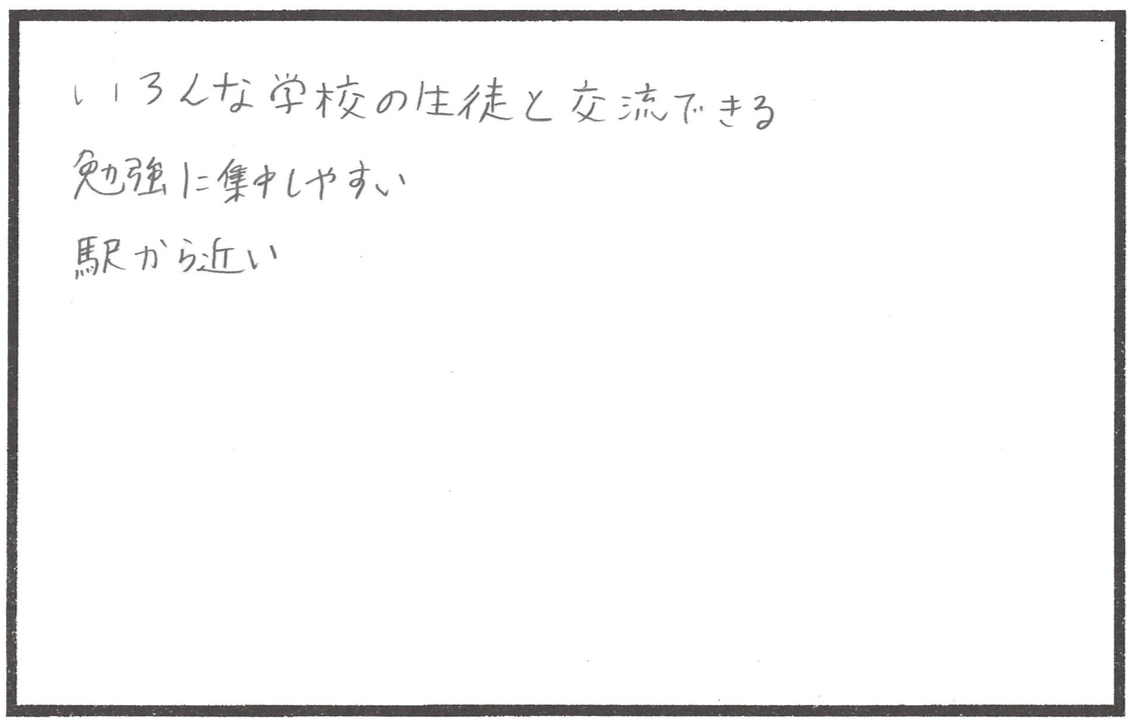 いろんな学校の生徒と交流できる
勉強に集中しやすい
駅から近い